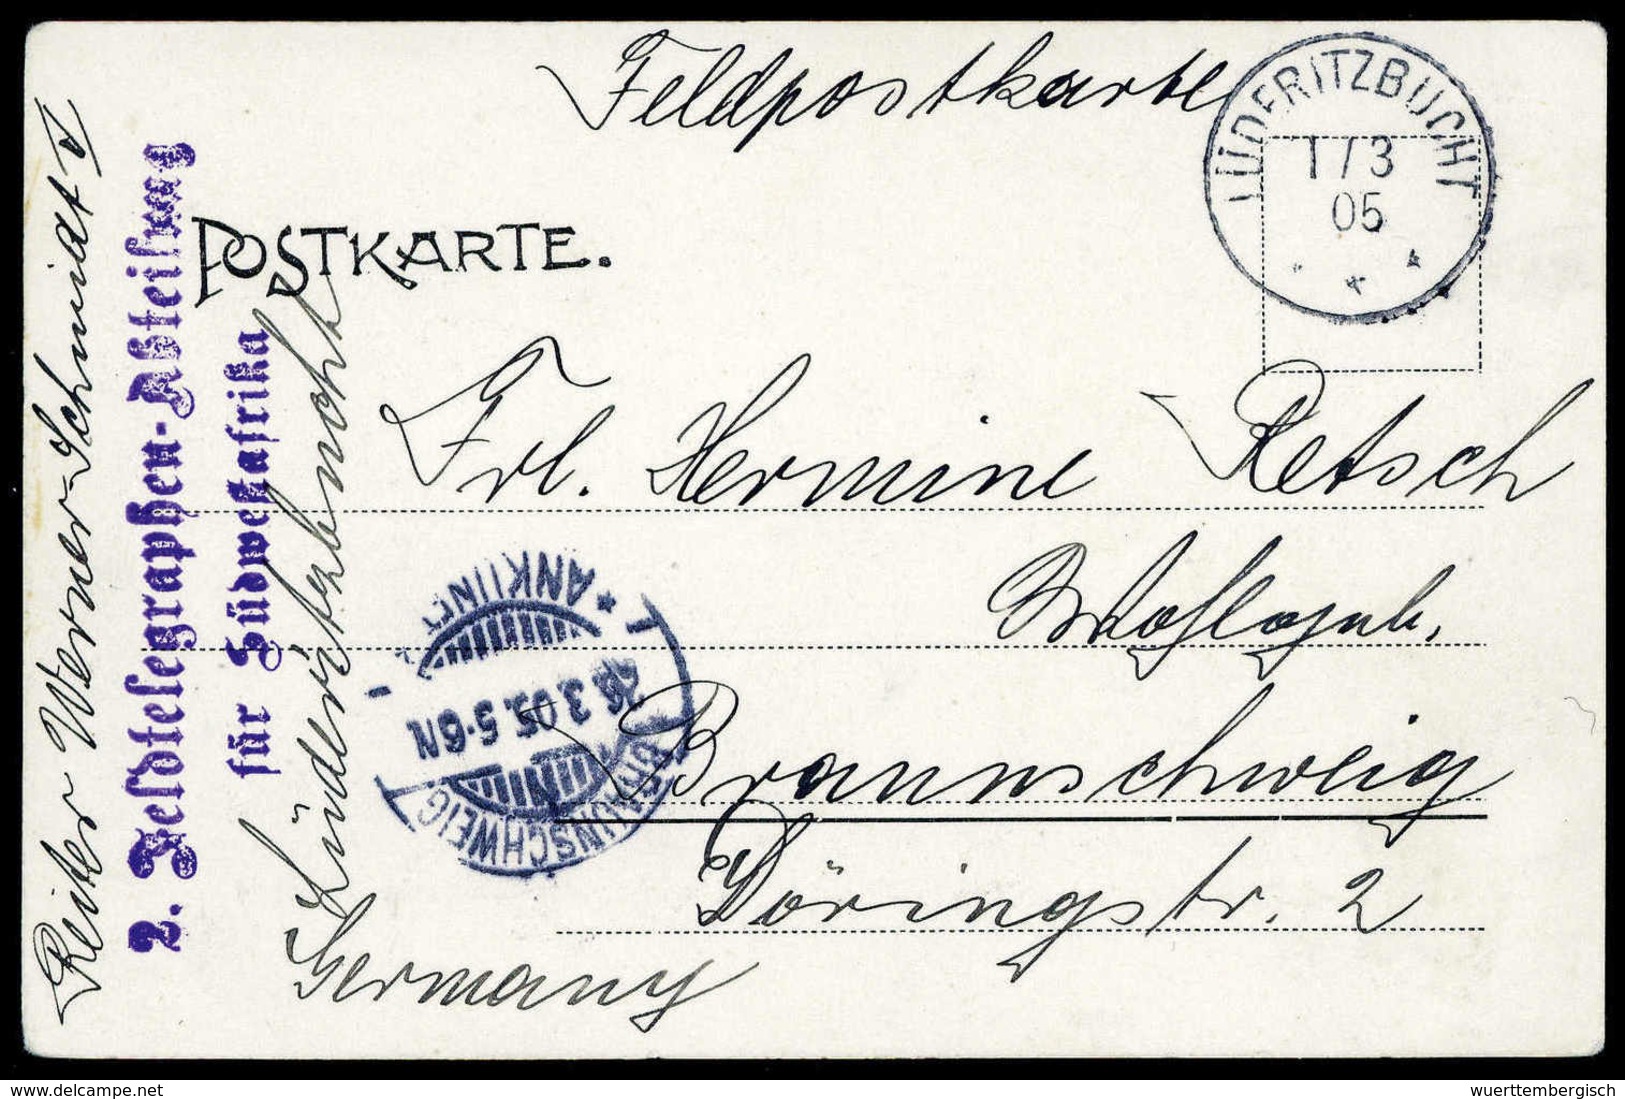 Feldpostkarte
LÜDERITZBUCHT
1/3
05
POSTKARTE.
Frl. Hermine Retsch
Wohlgeb.
Braunschweig
Döringstr. 2
Germany
Reiter Werner-Schmidt V
2. Feldtelegraphen-Abteilung
für Südwestafrika
Lüderitzbucht
BRAUNSCHWEIG
26.3.05. 5-6N
* ANKUNFT
www.delcampe.net
wuerttembergisch